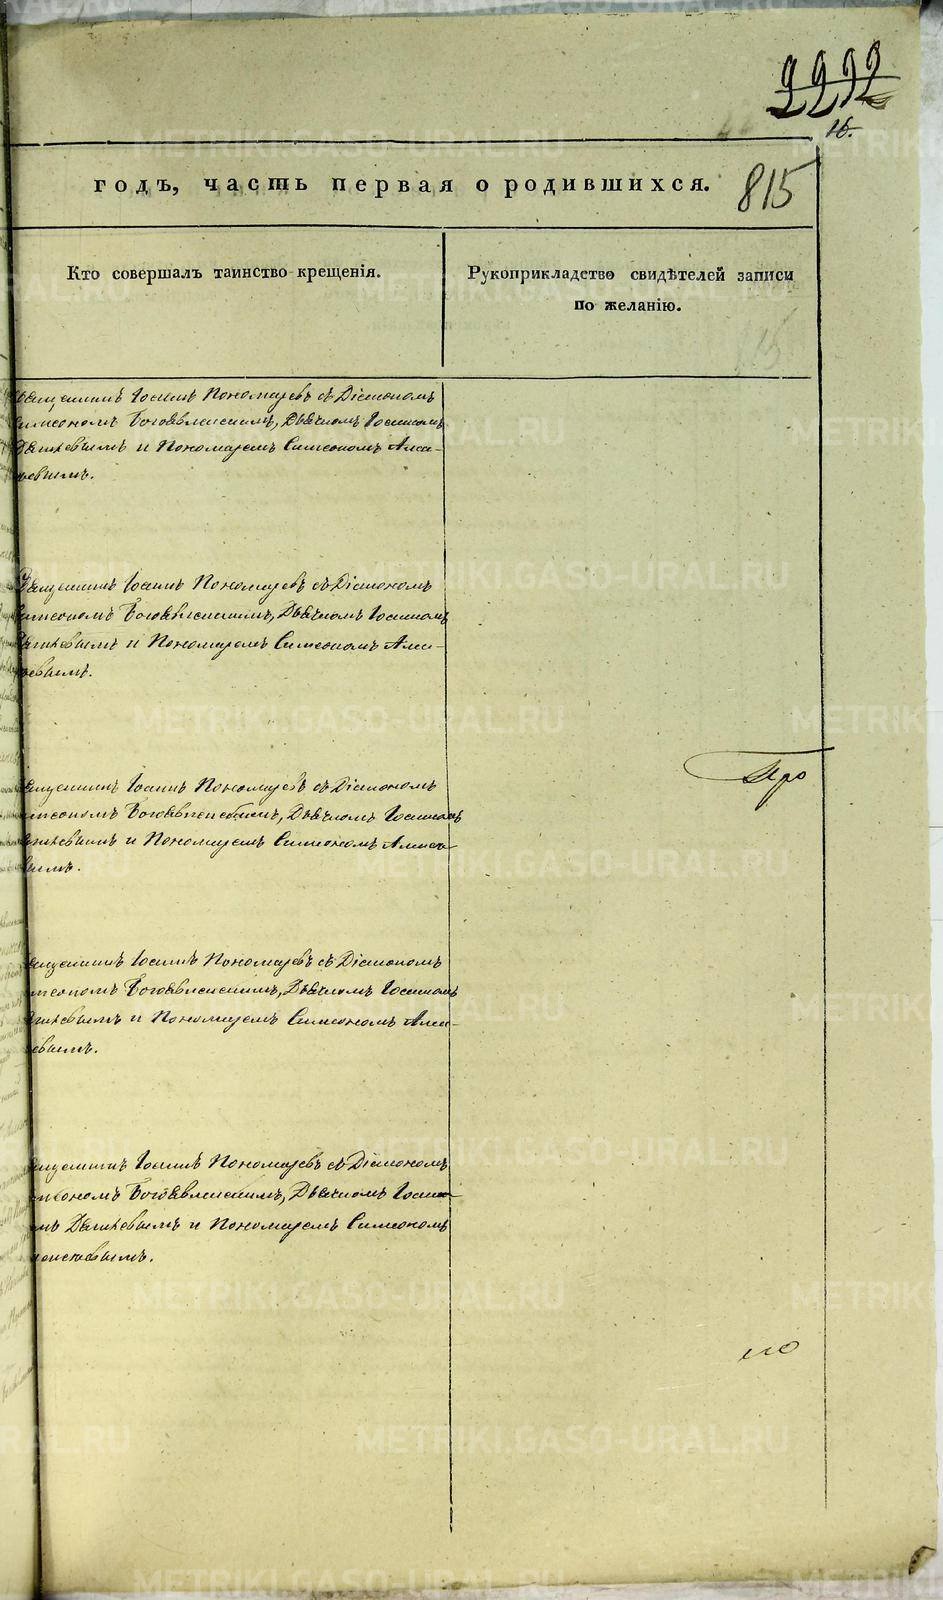 2292
16.
годъ, часть первая о родившихся. 815
Кто совершалъ таинство крещенія.
Рукоприкладство свидѣтелей записи
по желанію.
Священникъ Іоаннъ Пономаревъ съ Діакономъ
Симеономъ Богоявленскимъ, Дьячкомъ Іоанномъ
и Пономаремъ Симеономъ
Священникъ Іоаннъ Пономаревъ съ Діакономъ
Симеономъ Богоявленскимъ, Дьячкомъ Іоанномъ
и Пономаремъ Симеономъ
Священникъ Іоаннъ Пономаревъ съ Діакономъ
Симеономъ Богоявленскимъ, Дьячкомъ Іоанномъ
и Пономаремъ Симеономъ
Про
Священникъ Іоаннъ Пономаревъ съ Діакономъ
Симеономъ Богоявленскимъ, Дьячкомъ Іоанномъ
и Пономаремъ Симеономъ
Священникъ Іоаннъ Пономаревъ съ Діакономъ
Симеономъ Богоявленскимъ, Дьячкомъ Іоанно-
мъ и Пономаремъ Симеономъ
METRIKI.GASO-URAL.RU